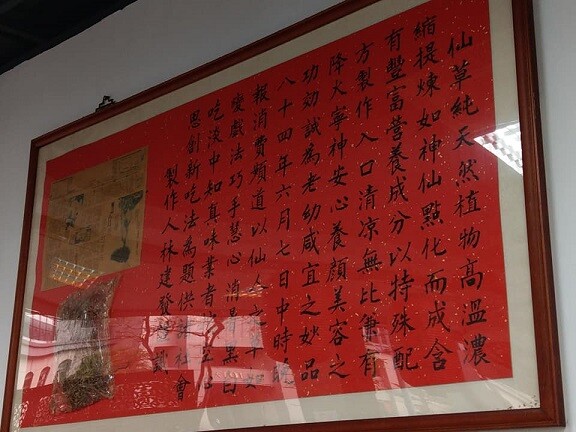 仙草純天然植物高溫濃
縮提煉如神仙點化而成含
有豐富营養成分以特殊配
方製作入口清凉無比兼有
降火寧神安心養顏美容之
功効誠為老幼咸宜之妙品
八十四年六月七日中時晚
報消費頻道以仙人之草如
變戲法巧手慧心消暑黑白
吃涼中知真味業者
思創新吃法為題供社會
製作人林建發